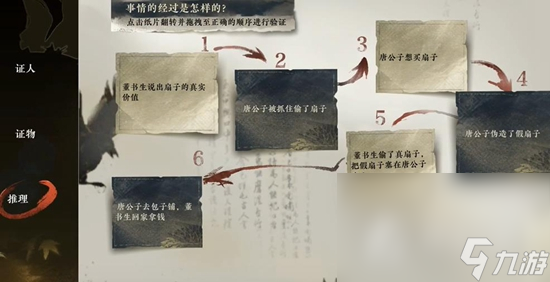 事情的经过是怎样的？
点击纸片翻转并拖拽至正确的顺序进行验证
证人
证物
推理
1
董书生说出扇子的真实
价值
2
唐公子被抓住偷了扇子
3
唐公子想买扇子
4
唐公子伪造了假扇子
5
董书生偷了真扇子，
把假扇子塞在唐公子
6
唐公子去包子铺，董
书生回家拿钱
九游